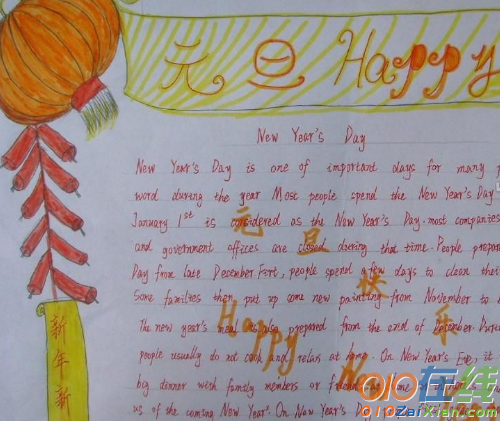 元旦 Happy
New Year's Day
New Year's Day is one of important days for many p
word duvring the year Most people spend the New Year's Day
January 1st is considered as the New Year's Day. most companies
and government offices are closed during that time. People prepar
Day from late December. Forst, people spend a few days to clean their
Some families then put up some new painting from November to
The new year's meal is also prepared from the end of December. Durin
people usually do not cook and relax at home. On New Year's Eve, it
big dinner with family members or friend
us of the coming New Year. On New Year's Day
元旦快乐
Happy New Year
新年新
010在线
010ZaiXian.com